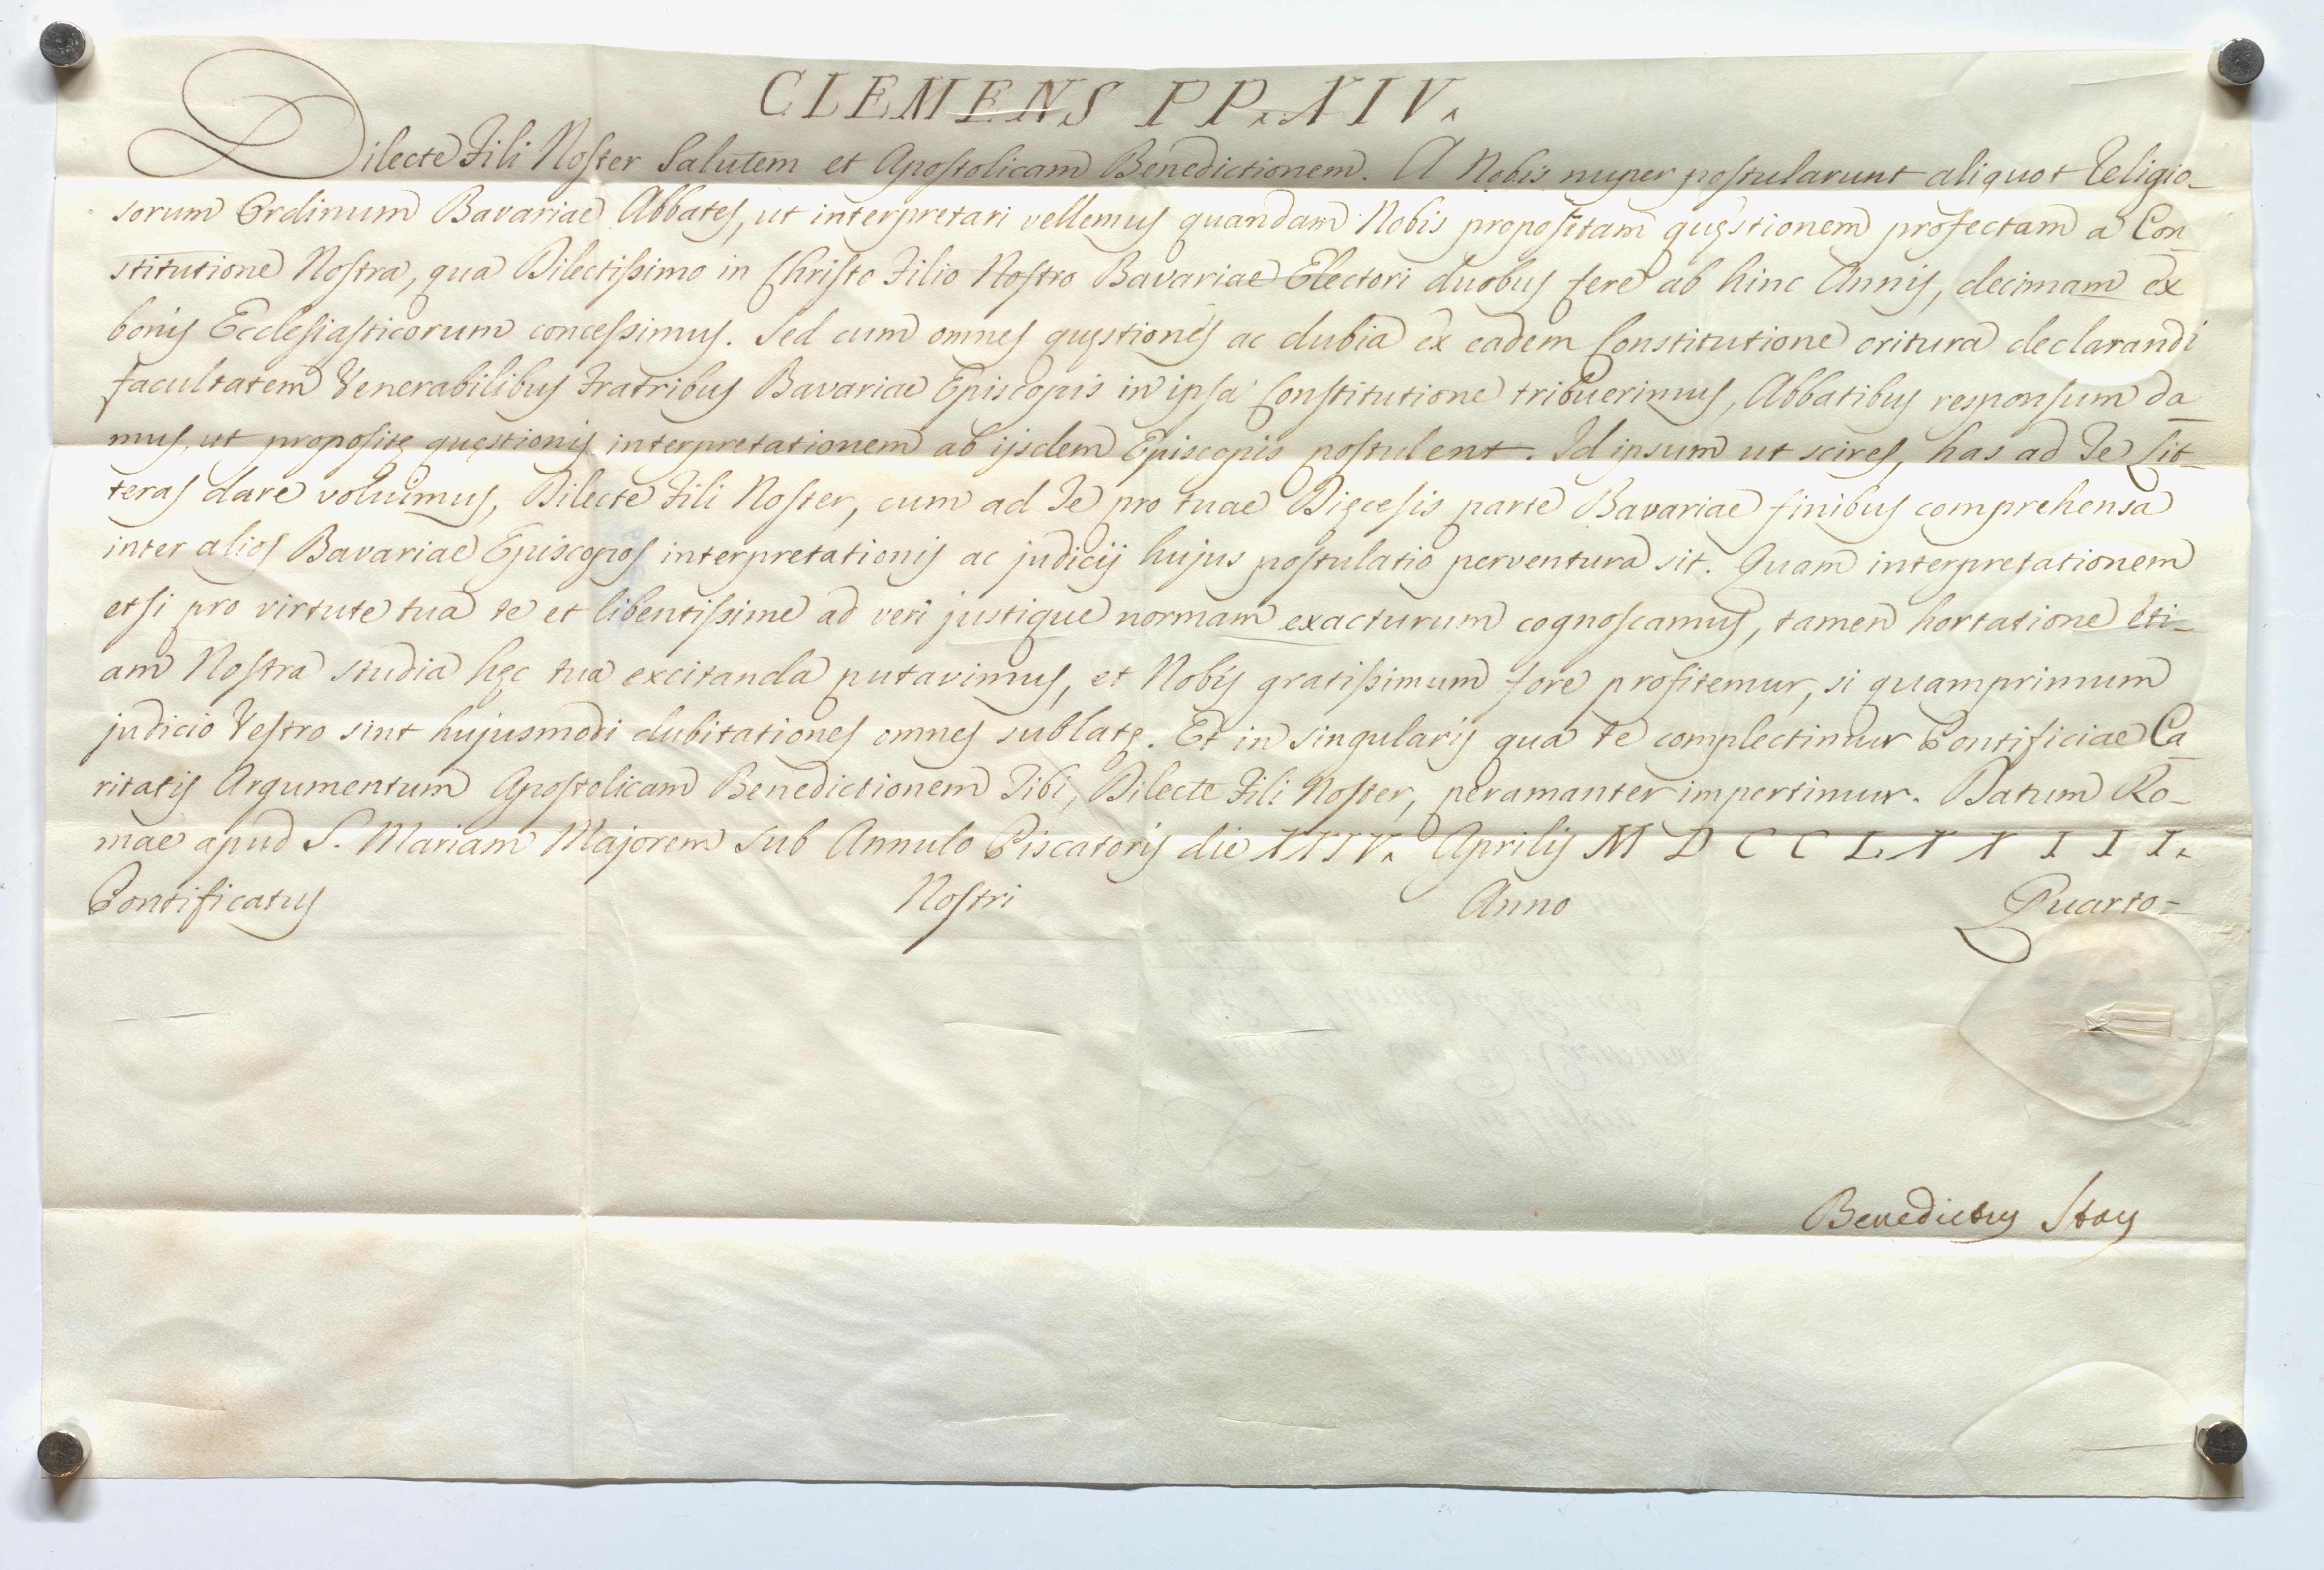 CLEMENS PP. XIV.
Dilecte Fili Noster Salutem et Apostolicam Benedictionem. A Nobis nuper postularunt aliquot Religio-
sorum Ordinum Bavariae Abbates, ut interpretari vellemus quandam Nobis propositam quęstionem profectam a Con-
stitutione Nostra, qua Dilectissimo in Christo Filio Nostro Bavariae Electori duobus fere ab hinc Annis, decimam ex
bonis Ecclesiasticorum concessimus. Sed cum omnes quęstiones ac dubia ex eadem Constitutione oritura declarandi
facultatem Venerabilibus Fratribus Bavariae Episcopis in ipsa Constitutione tribuerimus, Abbatibus responsum da-
mus, ut propositę quęstionis interpretationem ab ijsdem Episcopis postulent. Id ipsum ut scires, has ad Te Lit-
teras dare voluimus, Dilecte Fili Noster, cum ad Te pro tuae Dięcesis parte Bavariae finibus comprehensa
inter alios Bavariae Episcopos interpretationis ac judicij hujus postulatio perventura sit. Quam interpretationem
etsi pro virtute tua te et libentissime ad veri justique normam exacturum cognoscamus, tamen hortatione eti-
am Nostra studia hęc tua excitanda putavimus, et Nobis gratissimum fore profitemur, si quamprimum
judicio Vestro sint hujusmodi dubitationes omnes sublatę. Et in singularis qua te complectimur Pontificiae Ca-
ritatis Argumentum Apostolicam Benedictionem Tibi, Dilecte Fili Noster, peramanter impertimur. Datum Ro-
mae apud S. Mariam Majorem sub Annulo Piscatoris die XXIV. Aprilis MDCCLXXIII.
Pontificatus Nostri Anno Quarto-
Benedictus Stay